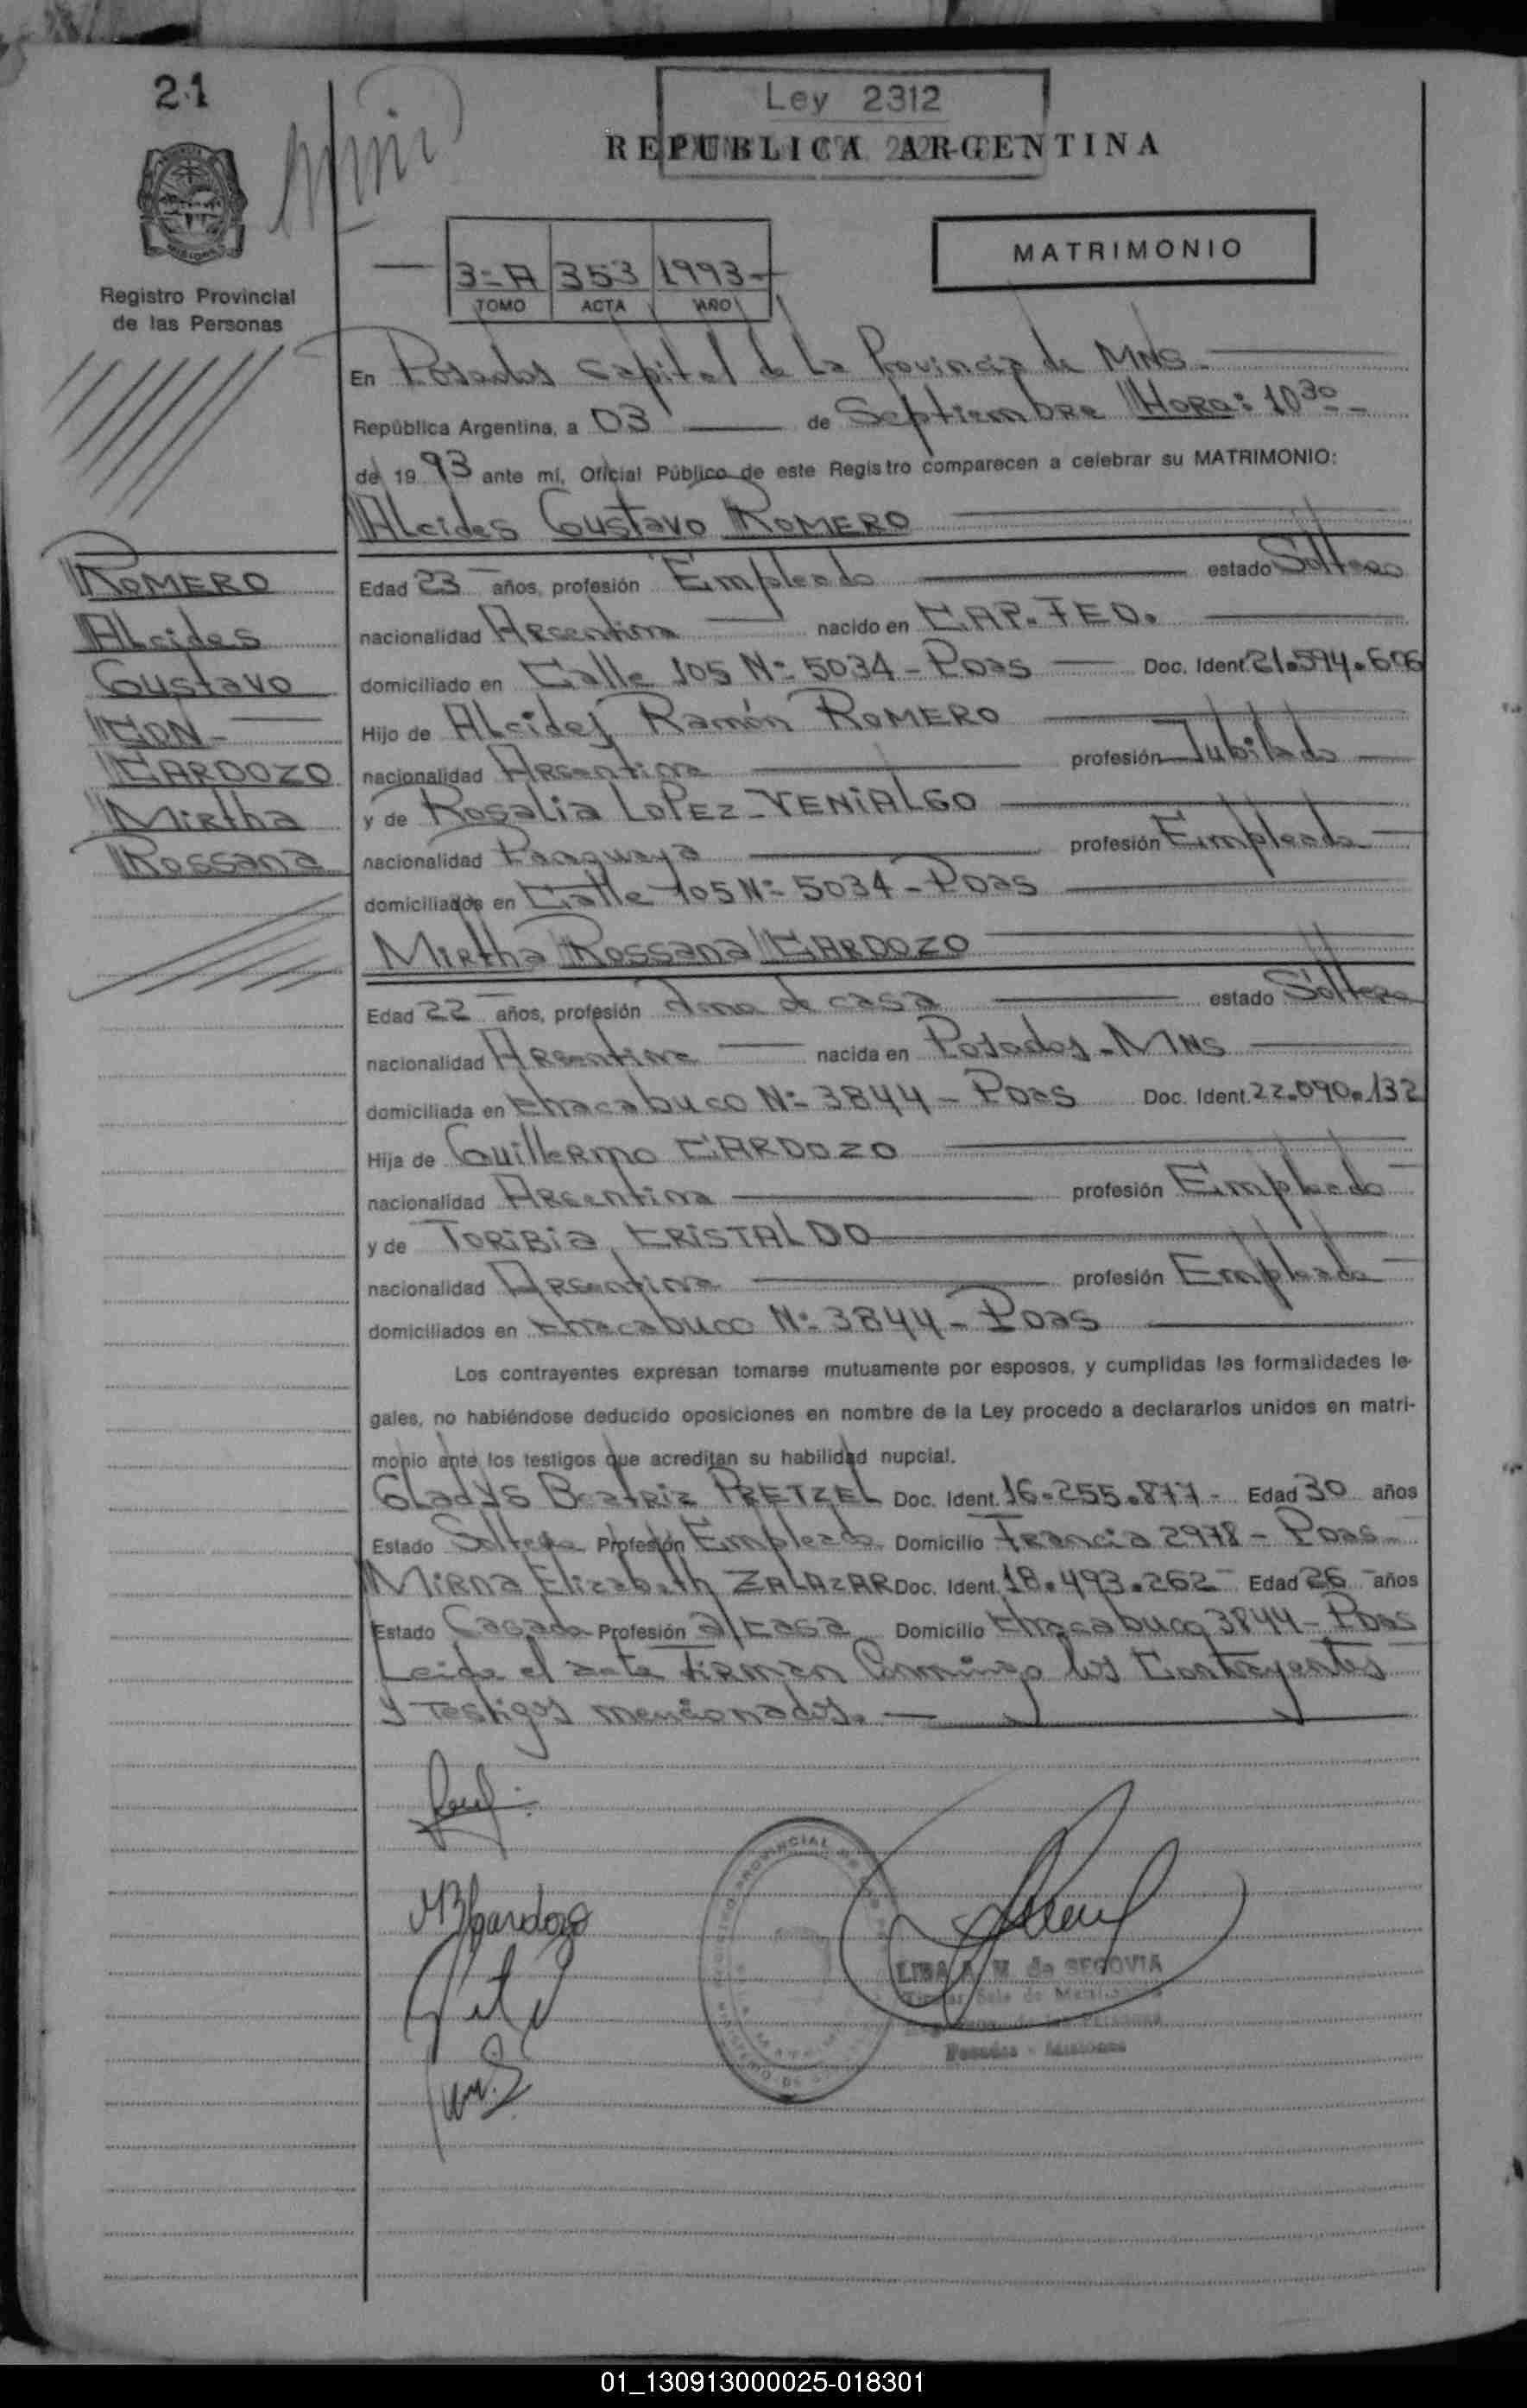 21
Ley 2312
REPUBLICA ARGENTINA
MATRIMONIO
Registro Provincial
de las Personas
3=A 353 1993-
TOMO ACTA AÑO
En Posadas Capital de La Provincia de MNS.
República Argentina, a 03 de Septiembre Hora: 10 30 -
de 19 93 ante mí, Oficial Público de este Registro comparecen a celebrar su MATRIMONIO:
Alcides Gustavo ROMERO
ROMERO
Alcides
Gustavo
CON -
CARDOZO
Mirtha
Rossana
Edad 23 años, profesión Empleado estado Soltero
nacionalidad Argentina nacido en CAP. FED.
domiciliado en Calle 105 Nº 5034 - Pdas Doc. Ident. 21.594.606
Hijo de Alcides Ramón ROMERO
nacionalidad Argentina profesión Jubilado
y de Rosalia LOPEZ - VENIALGO
nacionalidad Paraguaya profesión Empleada
domiciliados en Calle 105 Nº 5034 - Pdas
Mirtha Rossana CARDOZO
Edad 22 años, profesión Ama de casa estado Soltera
nacionalidad Argentina nacida en Posadas - MNS
domiciliada en Chacabuco Nº 3844 - Pdas Doc. Ident. 22.090.132
Hija de Guillermo CARDOZO
nacionalidad Argentina profesión Empleado
y de TORIBIA CRISTALDO
nacionalidad Argentina profesión Empleada
domiciliados en Chacabuco Nº 3844 - Pdas
Los contrayentes expresan tomarse mutuamente por esposos, y cumplidas las formalidades le-
gales, no habiéndose deducido oposiciones en nombre de la Ley procedo a declararlos unidos en matri-
monio ante los testigos que acreditan su habilidad nupcial.
Gladys Beatriz PRETZEL Doc. Ident. 16.255.877 - Edad 30 años
Estado Soltera Profesión Empleada Domicilio Francia 2978 - Pdas
Mirna Elizabeth ZALAZAR Doc. Ident. 18.493.262 - Edad 26 años
Estado Casada Profesión a/casa Domicilio Chacabuco 3844 - Pdas
Leida el acta Firman Conmigo los Contrayentes
y Testigos mencionados.
MRCardozo
LIBA A. M. de SEGOVIA
Posadas - Misiones
01_130913000025-018301